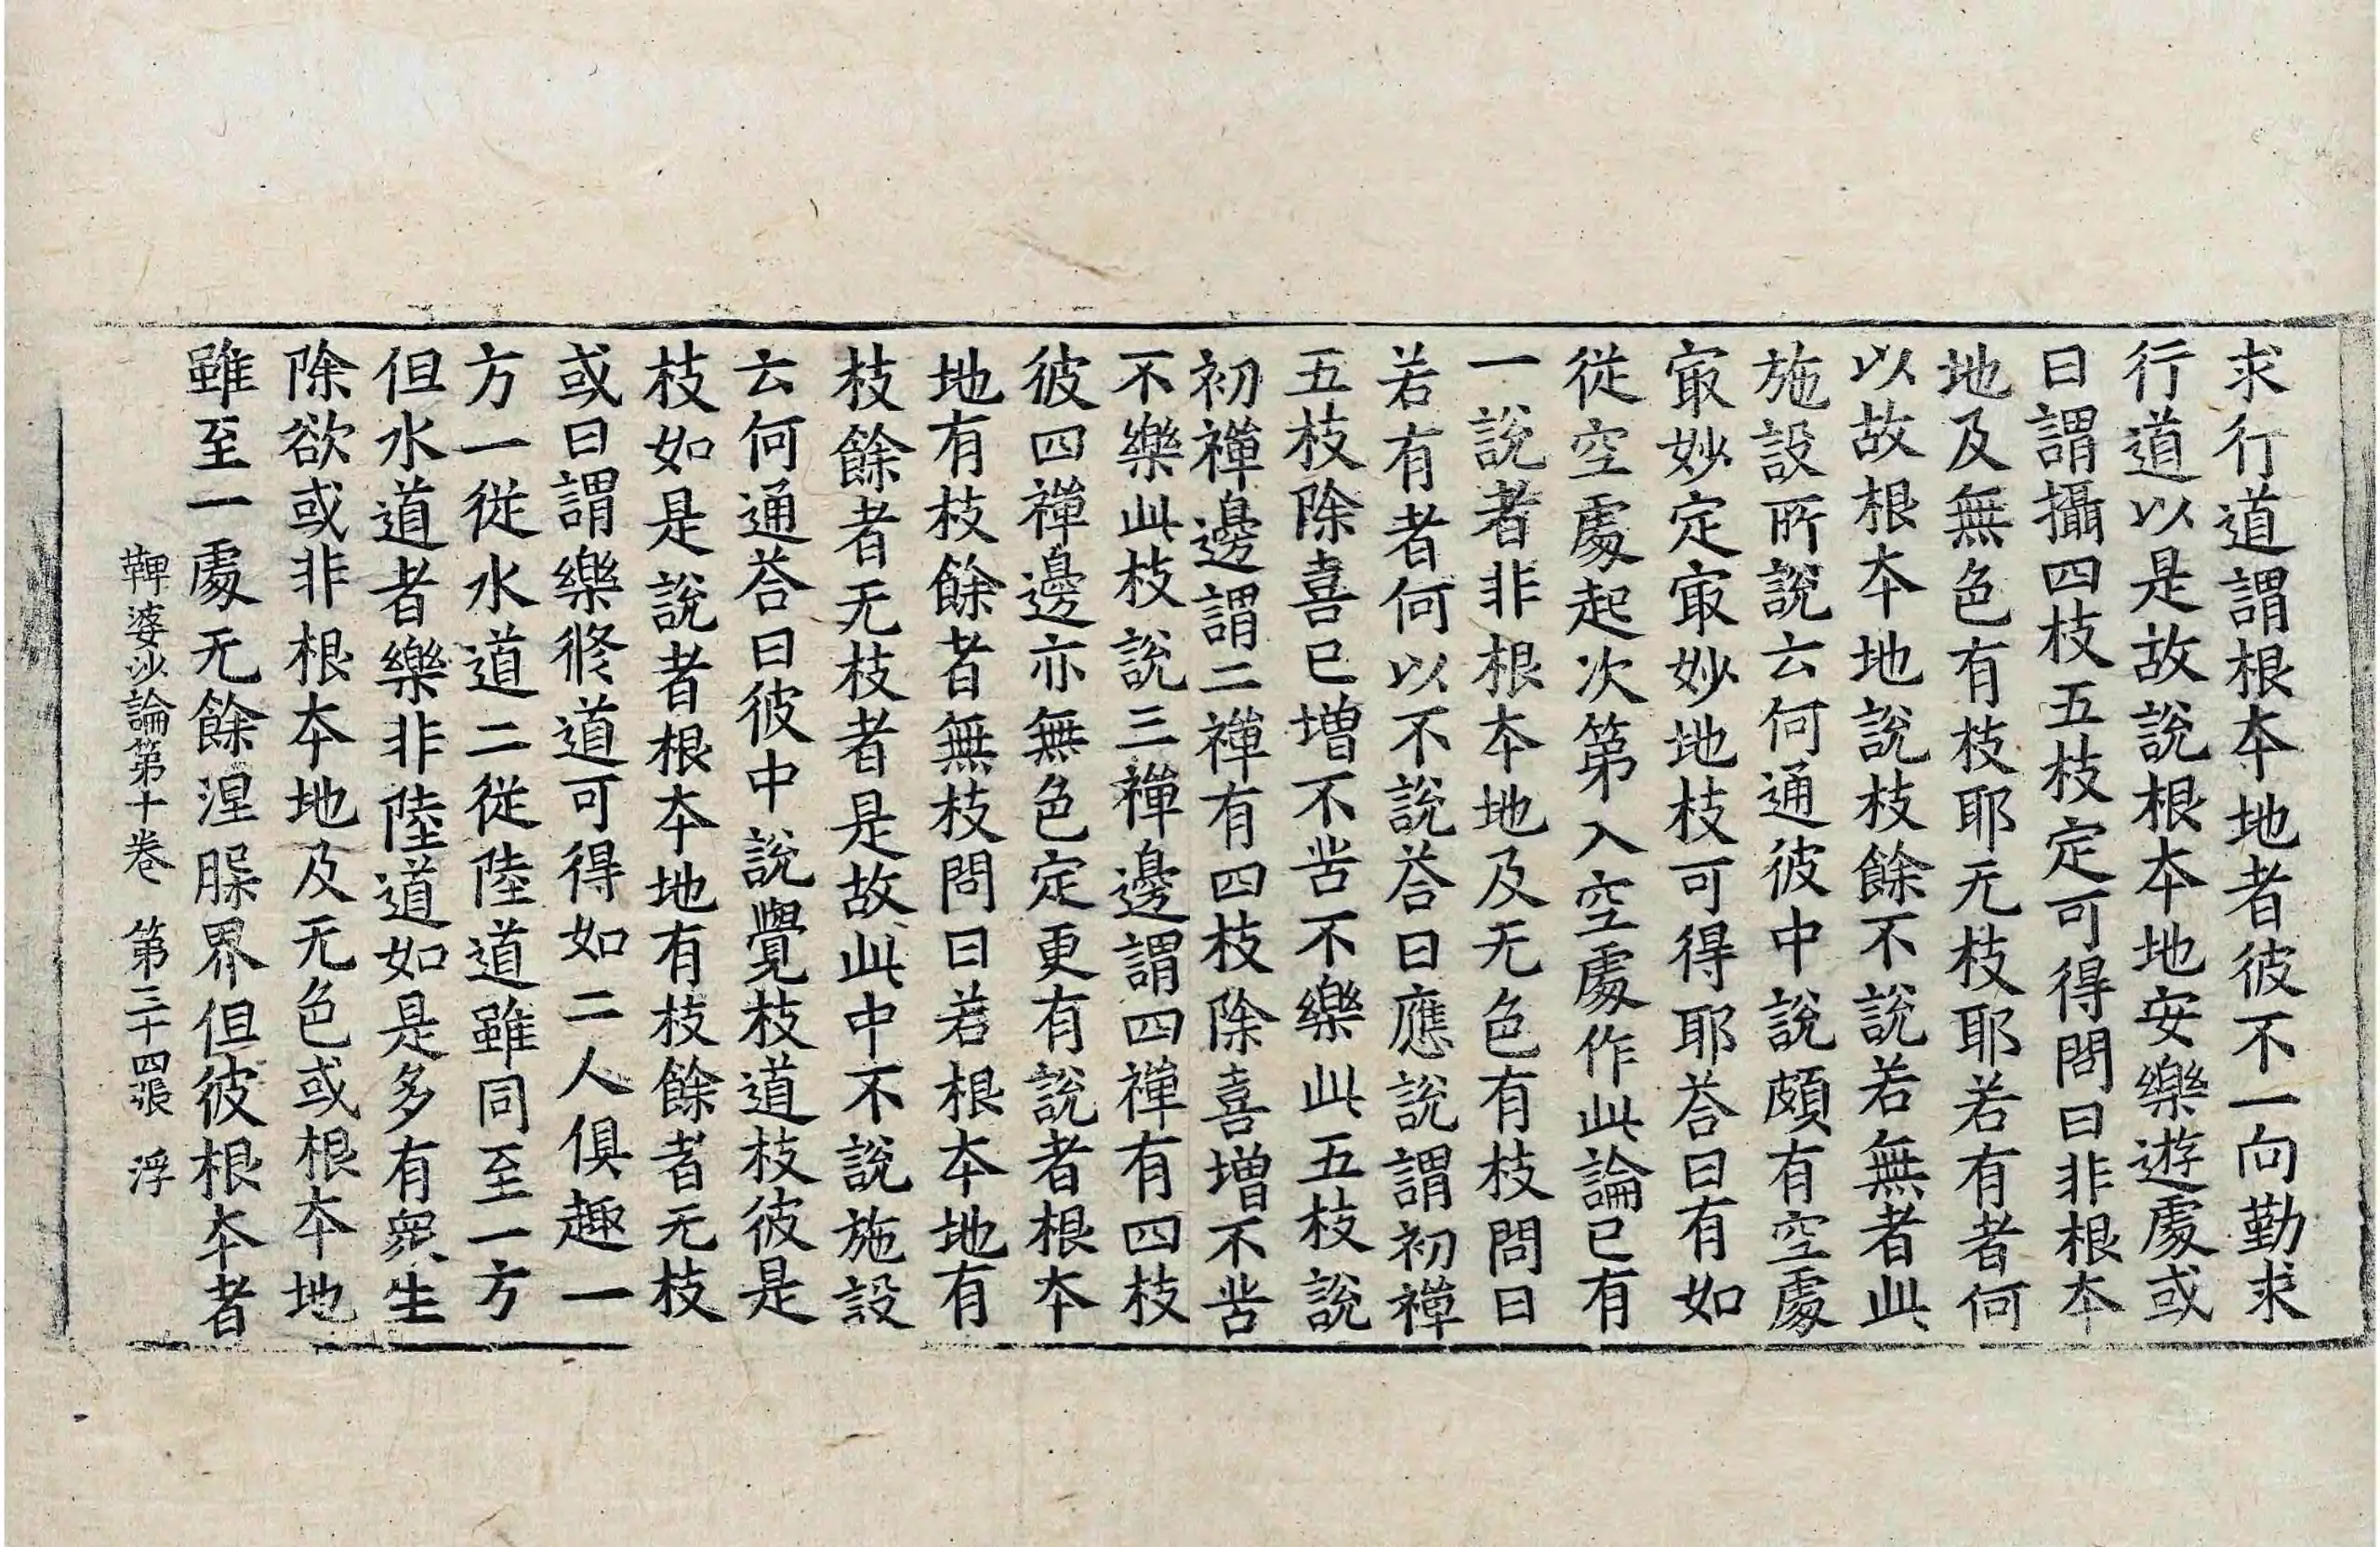 求行道謂根本地者彼不一向勤求
行道以是故說根本地安樂遊處或
曰謂攝四枝五枝定可得問曰非根本
地及無色有枝耶无枝耶若有者何
以故根本地說枝餘不說若無者此
施設所說云何通彼中說頗有空處
㝡妙定㝡妙地枝可得耶荅曰有如
從空處起次第入空處作此論已有
一說者非根本地及无色有枝問曰
若有者何以不說荅曰應說謂初禪
五枝除喜已增不苦不樂此五枝說
初禪邊謂二禪有四枝除喜增不苦
不樂此枝說三禪邊謂四禪有四枝
彼四禪邊亦無色定更有說者根本
地有枝餘者無枝問曰若根本地有
枝餘者无枝者是故此中不說施設
云何通荅曰彼中說覺枝道枝彼是
枝如是說者根本地有枝餘者无枝
或曰謂樂修道可得如二人俱趣一
方一從水道二從陸道雖同至一方
但水道者樂非陸道如是多有眾生
除欲或非根本地及无色或根本地
雖至一處无餘涅槃界但彼根本者
鞞婆沙論第十卷　第三十四張　浮